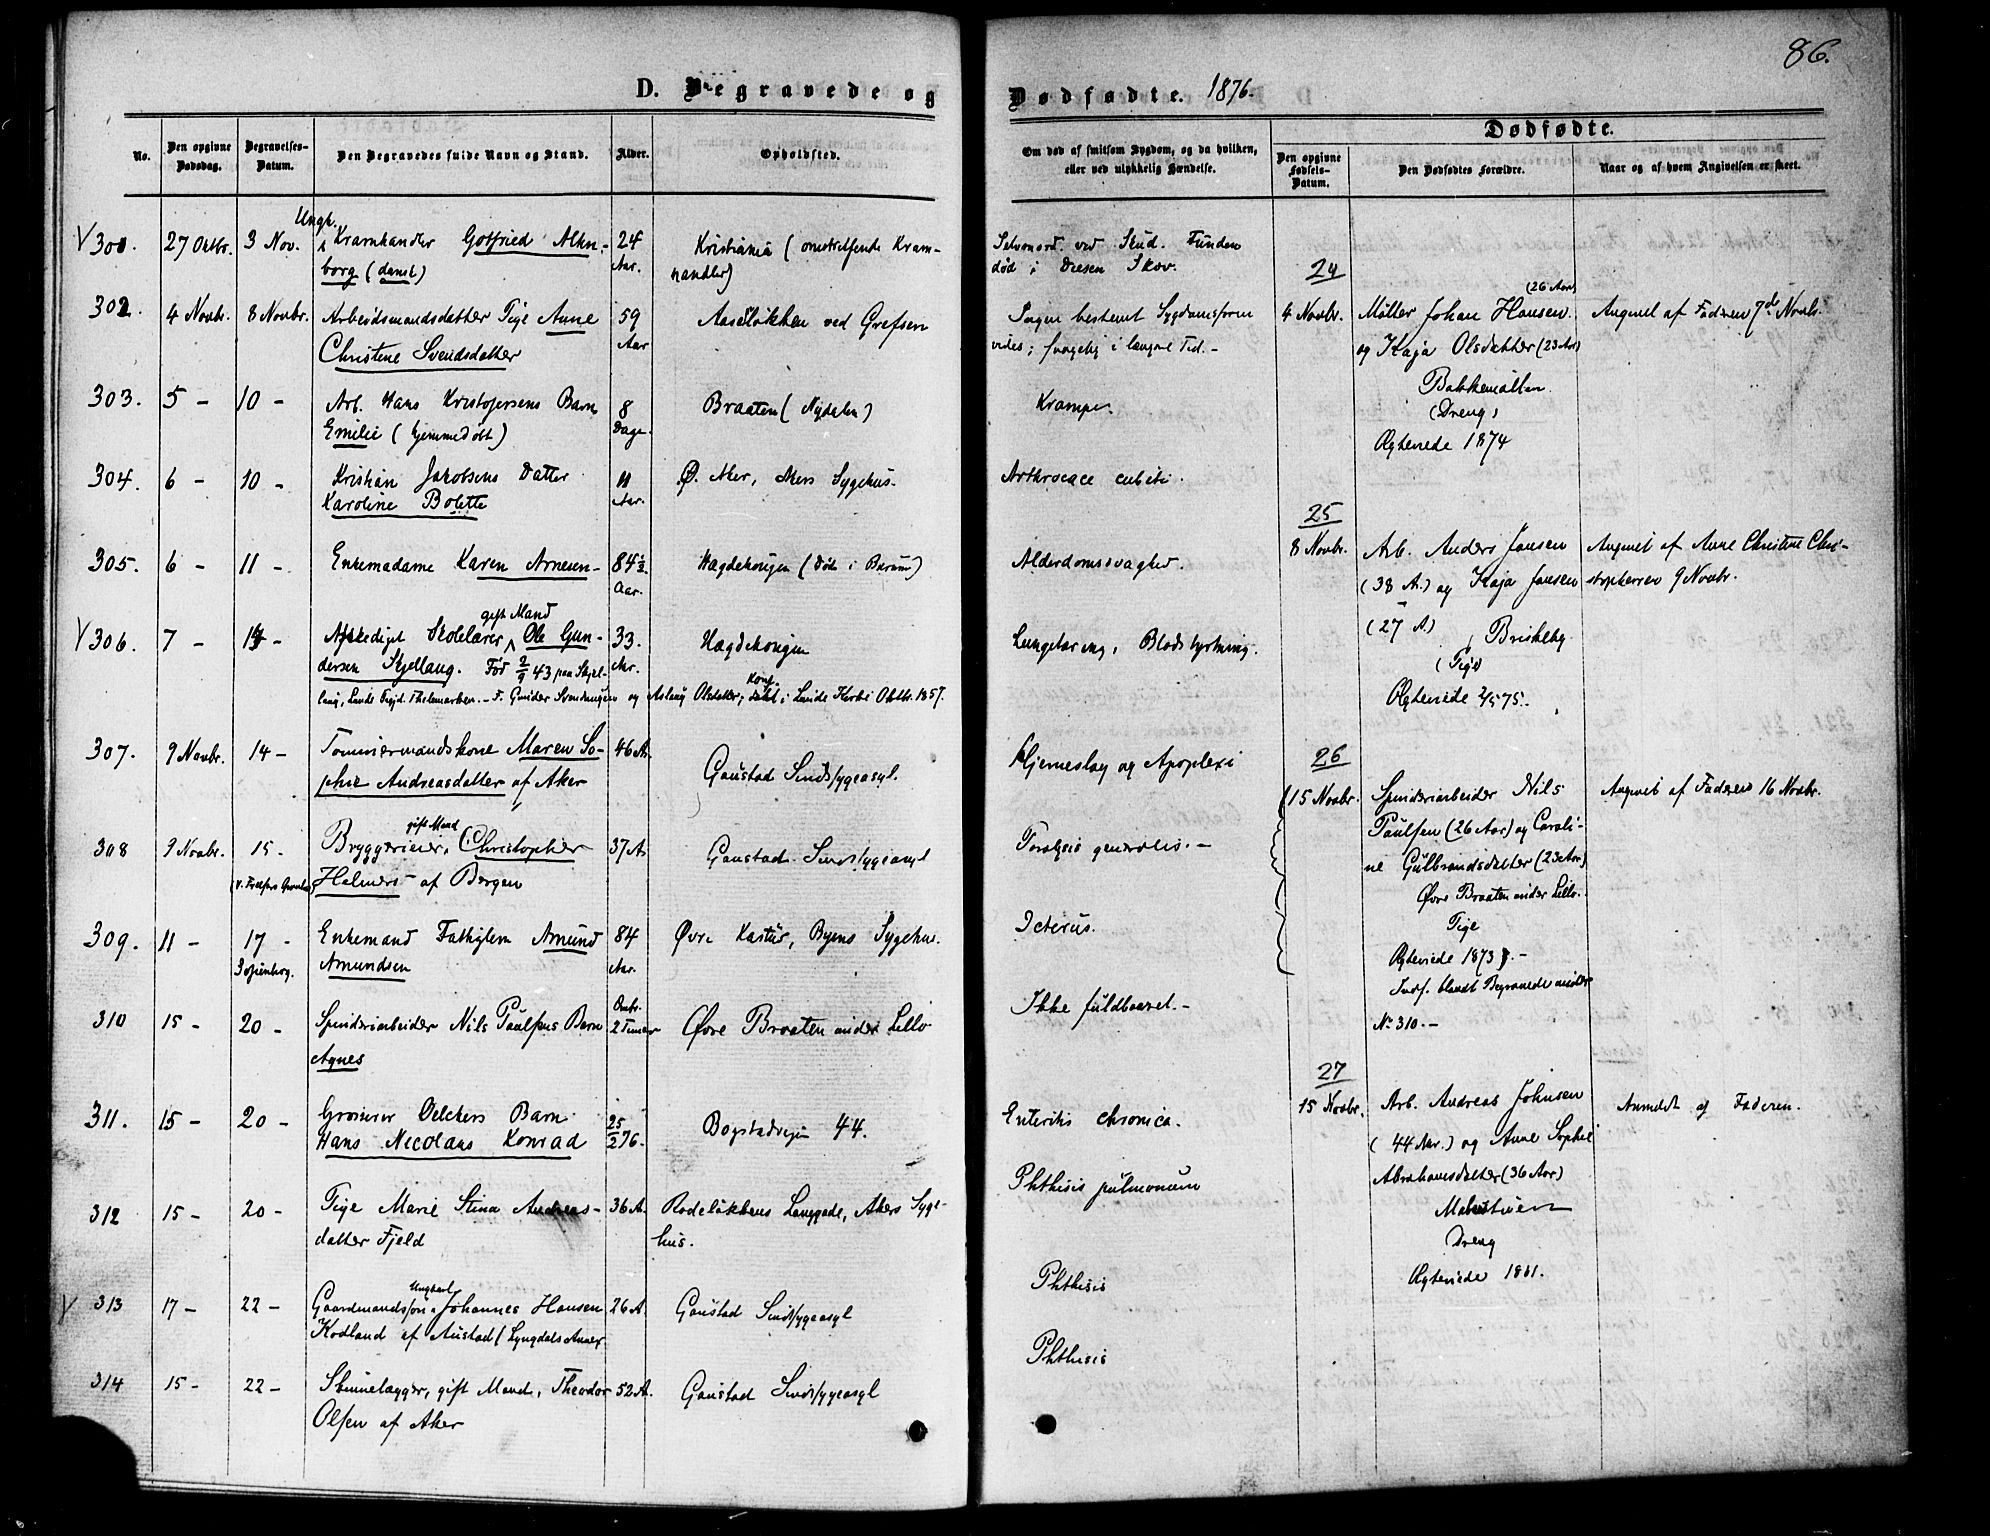 86.
D. Begravede og
Dødfødte. 1876.
No.
Den opgivne Dødsdag.
Begravelses-Datum.
Den Begravedes fulde Navn og Stand.
Alder.
Opholdsted.
Om død af smitsom Sygdom, og da hvilken, eller ved ulykkelig Hændelse.
Dødfødte.
Den opgivne Fødsels-Datum.
Den Dødfødtes Forældre.
Naar og af hvem Angivelsen er skeet.
301. 27 Oktbr. 3 Nov. Ungk. Kramhandler Gotfried Alten-
borg (dansk)
24 Aar.
Kristiania (omstreifende Kram-
handler)
Selvmord ved Skud. Funden
død i Skov.
302. 4 Novbr. 8 Novbr. Arbeidsmandsdatter Pige Anne
Christine Svendsdatter
59 Aar
Aaseløkken ved Grefsen
Ingen bestemt Sygdomsform
vides; svagelig i længere Tid. -
303. 5 - 10 - Arb. Hans Kristofersens Barn
Emilie (hjemmedøbt)
8 Dage.
Braaten (Nydalen)
Krampe.
304. 6 - 10 - Kristian Jakobsens Datter
Karoline Bolette
11 Aar.
Ø. Aker, Akers Sygehus.
Arthrocace cubiti.
305. 6 - 11 - Enkemadame Karen Arnesen
84½ Aar.
Hagdehougen (død i Bærum)
Alderdomssvaghed.
306. 7 - 14 - Afskediget Skolelærer, gift Mand Ole Gun-
dersen Skjellaug. Fød 2/9 43 paa Skjel-
laug, Lunde Prgjd. Thelemarken. - F. Gunder Svenningsen og Aslaug Olsdatter, Konf. i Lunde Kirke i Oktbr. 1857.
33. Aar.
Hagdehougen
Lungetæring, Blodstyrtning.
307. 9 Novbr. 14 - Tømmermandskone Maren So-
phie Andreasdatter af Aker
46 A.
Gaustad Sindssygeasyl.
Hjerneslag og Apoplexi
308 9 Novbr. 15 - Bryggerieier, gift Mand Christopher
Helmers af Bergen
37 A.
Gaustad Sindssygeasyl
Paralysis generalis. -
309. 11 - 17 - Enkemand Fattiglem Amund
Amundsen
84 Aar.
Øvre Kastur, Byens Sygehus.
Icterus.
310 15 - 20 - Spinderiarbeider Nils Paulsens Barn
Agnes
Omtr. 2 Timer
Øvre Braaten under Lillo
Ikke fuldbaaret. -
311. 15 - 20 - Grosserer Oelckers Barn
Hans Nicolaus Konrad
25/2 76.
Bogstadvejen 44.
Enteritis chronica.
312 15 - 20 - Pige Marie Stina Andreas-
datter Fjeld
36 A.
Rodeløkkens Langgade, Akers Syge-
hus.
Phthisis pulmonum
313 17 - 22 - Gaardmandssøn, Ungkarl Johannes Hansen
Kodland af Austad (Lyngdals Annex
26 A.
Gaustad Sindssygeasyl
Phthisis
314 15 - 22 - Stenlægger, gift Mand, Theodor
Olsen af Aker
52 A.
Gaustad Sindssygeasyl
Phthisis
24
4 Novbr. Møller Johan Hansen (26 Aar)
og Kaja Olsdatter (23 Aar)
Bakkemøllen.
(Dreng)
Ægteviede 1874
Angivet af Faderen 7de Novbr.
25
8 Novbr. Arb. Anders Jansen
(38 A.) og Kaja Jansen
(27 A.) Briskeby.
(Pige)
Ægteviede 2/5 75.
Angivet af Anne Christine Chri-
stophersen 9 Novbr.
26
15 Novbr. Spinderiarbeider Nils
Paulsen (26 Aar) og Caroli-
ne Gulbrandsdatter (23 Aar)
Øvre Braaten under Lillo.
Pige
Ægteviede 1873. -
Indf. blandt Begravede under
No 310. -
Angivet af Faderen 16 Novbr.
27
15 Novbr. Arb. Andreas Johnsen
(44 Aar.) og Anne Sophie
Abrahamsdatter (36 Aar)
Dreng
Ægteviede 1861.
Anmeldt af Faderen.